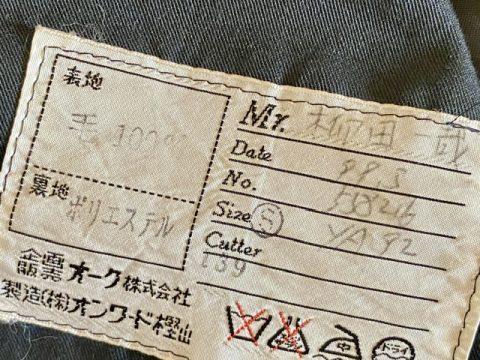 表地
毛 100%
裏地
ポリエステル
Mr. 柳田一哉
Date 99.5
No. 55216
Size Ⓢ YA92
Cutter
139
企画 販売 オーク株式会社
製造(株)オンワード樫山
ドライ